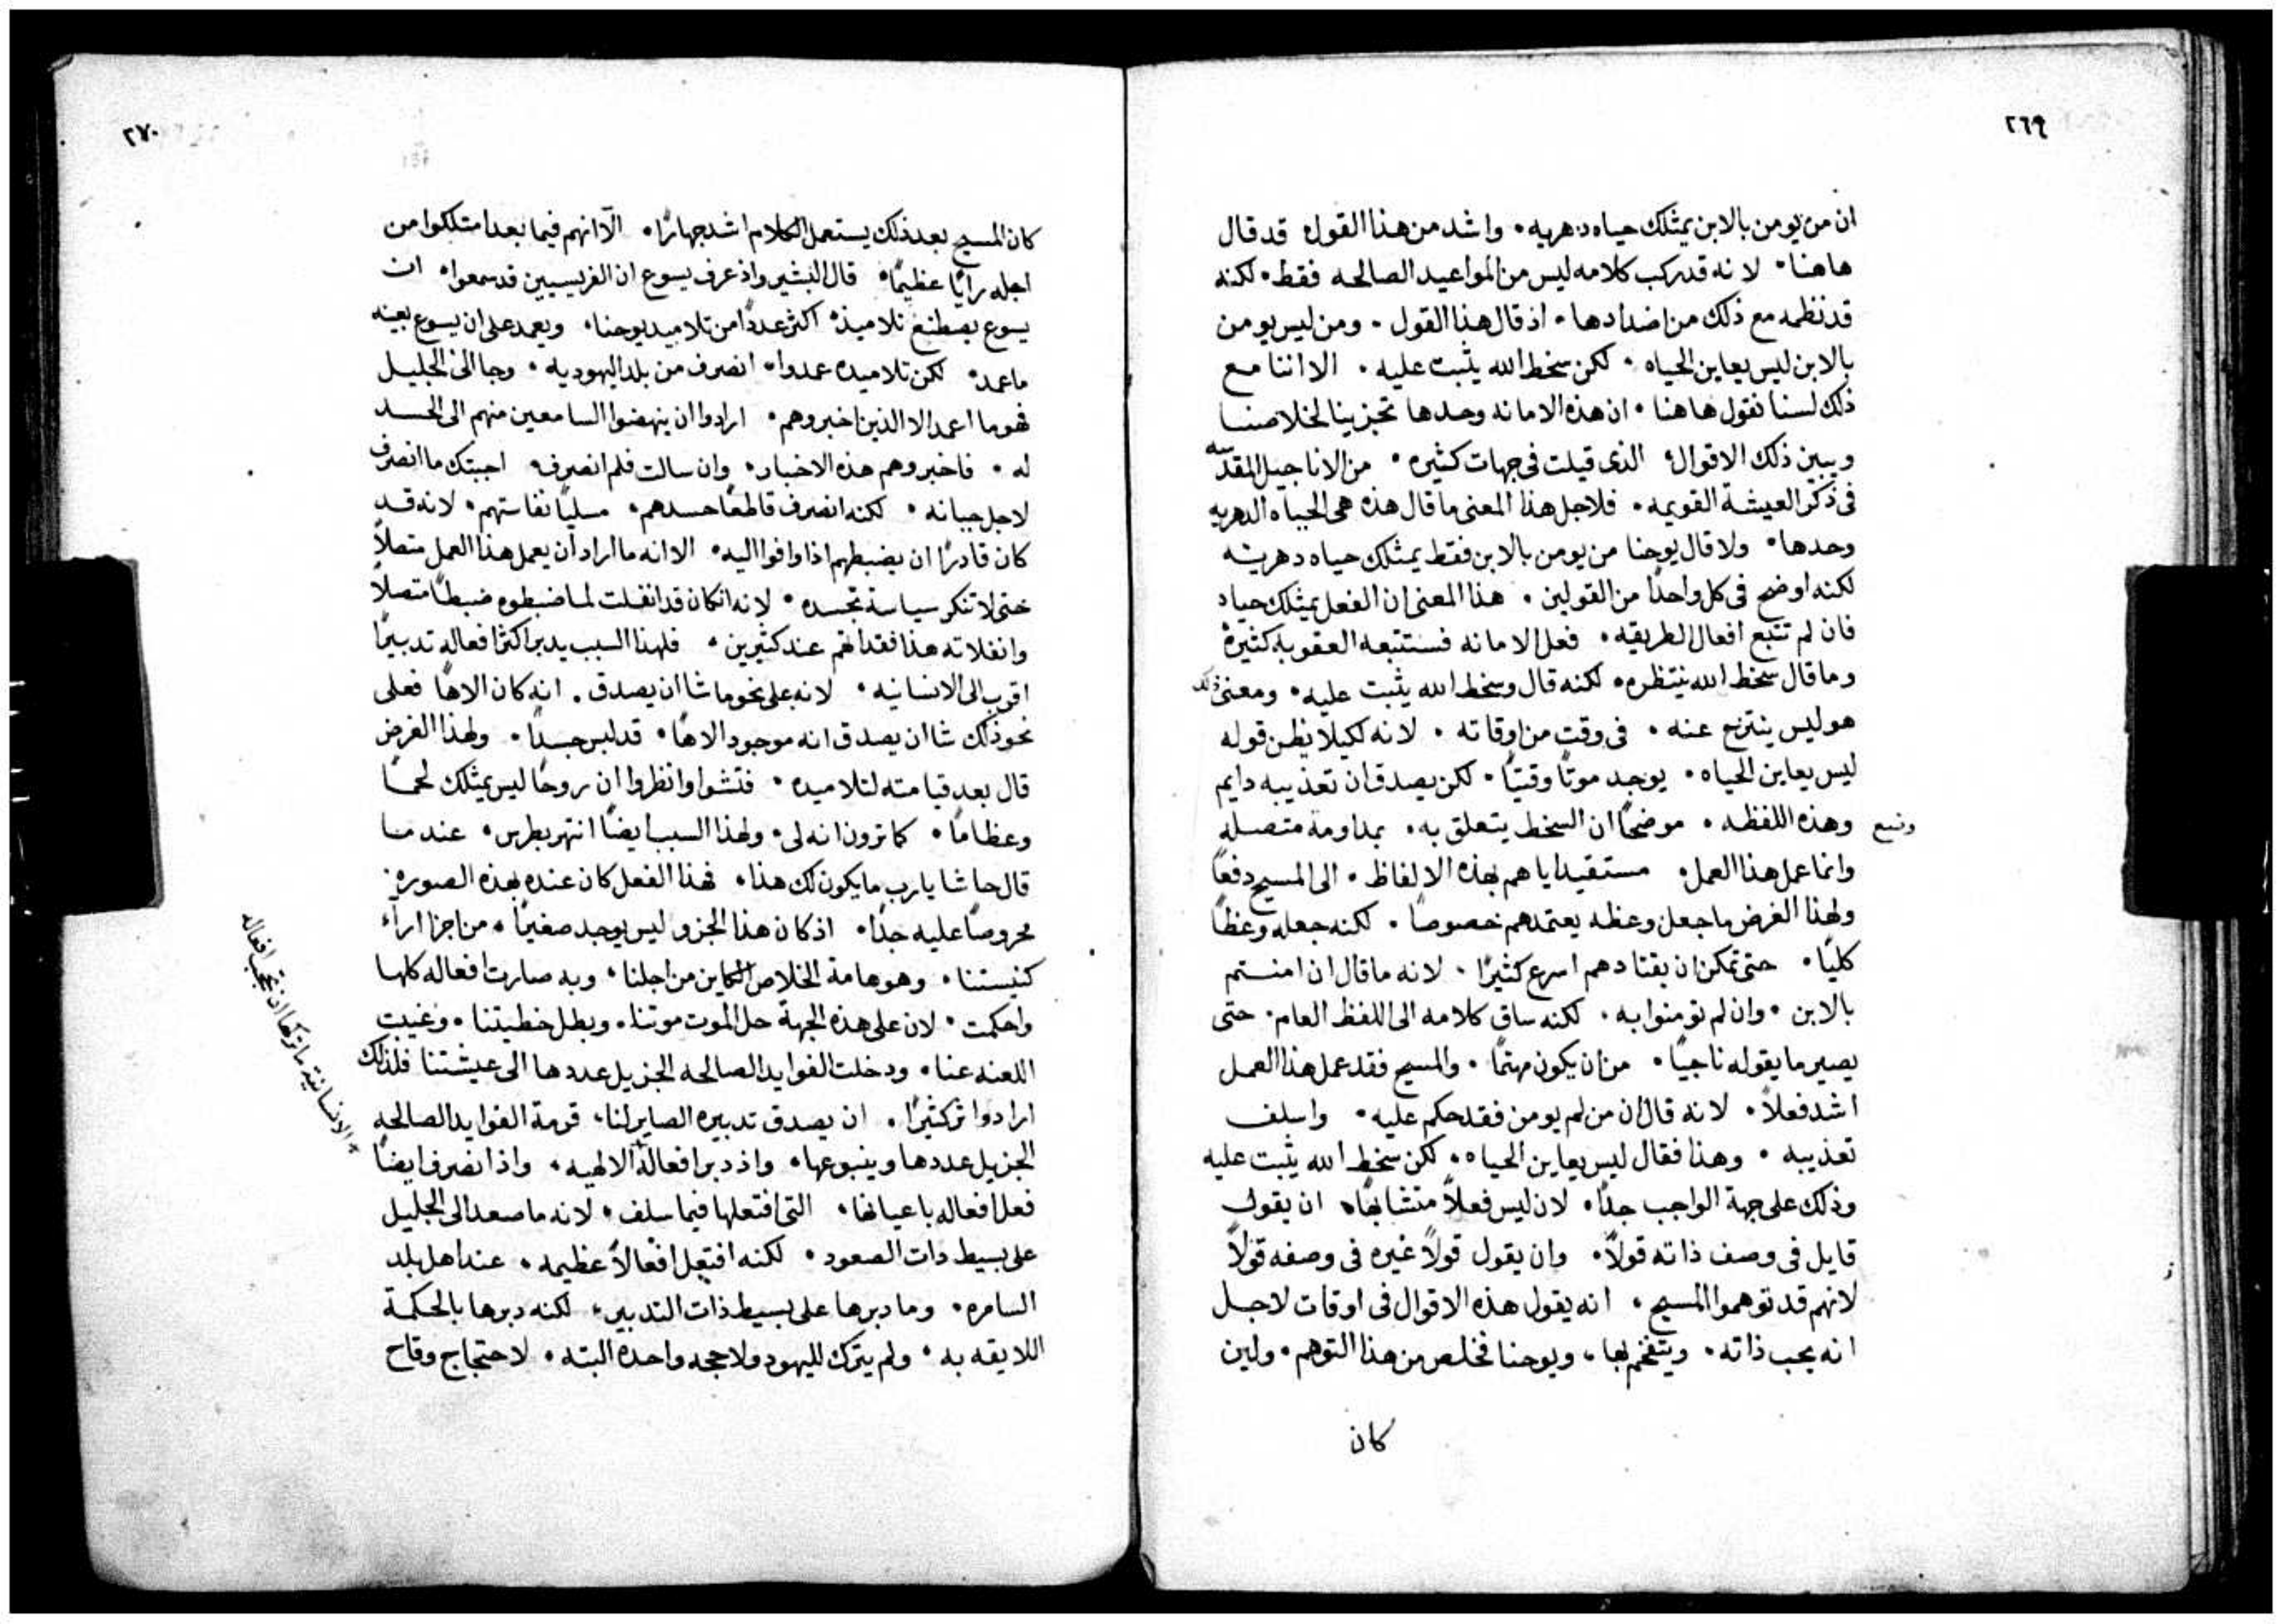 ٢٦٩
ان من يومن بالابن يمثلك حياه دهريه. واشد من هذا القول قد قال
هاهنا. لانه قد ركب كلامه ليس من المواعيد الصالحه فقط. لكنه
قد نظمه مع ذلك من اضدادها. اذ قال هذا القول. ومن ليس يومن
بالابن ليس يعاين الحياه. لكن سخط الله يثبت عليه. الا اننا مع
ذلك لسنا نقول هاهنا. ان هذه الامانه وحدها تجزينا لخلاصنا
ويبين ذلك الاقوال الذى قيلت فى جهات كثيره. من الاناجيل المقدسه
فى ذكر العيشة القويمه. فلاجل هذا المعنى ما قال هذه هى الحياه الدهريه
وحدها. ولا قال يوحنا من يومن بالابن فقط يمثلك حياه دهريه
لكنه اوضح فى كل واحدًا من القولين. هذا المعنى ان الفعل يمثلك حياه
فان لم تتبع افعال الطريقه. فعل الامانه فستتبعه العقوبه كثيرة
وما قال سخط الله ينتظره. لكنه قال وسخط الله يثبت عليه. ومعنى ذلك
هو ليس ينتزح عنه. فى وقت من اوقاته. لانه لكيلا يظن قوله
ليس يعاين الحياه. يوجد موتًا وقتيًا. لكن يصدق ان تعذيبه دايم
وضع وهذه اللفظه. موضحًا ان السخط يتعلق به. بمداومة متصله
وانما عمل هذا العمل. مستقيدا اياهم بهذه الالفاظ. الى المسيح دفعًا
ولهذا الغرض ما جعل وعظه يعتمدهم خصوصًا. لكنه جعله وعظًا
كليًا. حتى تمكن ان يقتادهم اسرع كثيرًا. لانه ما قال ان امنتم
بالابن. وان لم تومنوا به. لكنه ساق كلامه الى اللفظ العام. حتى
يصير ما يقوله ناجيًا. من ان يكون متهمًا. والمسيح فقد عمل هذا العمل
اشد فعلاً. لانه قال ان من لم يومن فقد حكم عليه. واسلف
تعذيبه. وهذا فقال ليس يعاين الحياه. لكن سخط الله يثبت عليه
وذلك على جهة الواجب جدًا. لان ليس فعلاً متشابهًا ان يقول
قايل فى وصف ذاته قولاً. وان يقول قولاً غيره فى وصفه قولاً
لانهم قد توهموا المسيح. انه يقول هذه الاقوال فى اوقات لاجل
انه يحب ذاته. ويتفخم بها. ويوحنا فخلص من هذا التوهم. ولين
كان
٢٧٠
كان المسيح بعد ذلك يستعمل الكلام اشد جهارًا. الّا انهم فيما بعد امتلكوا من
اجله رايًا عظيمًا. قال البشير واذ عرف يسوع ان الفريسيين قد سمعوا. ان
يسوع يصطنع تلاميذ. اكثر عددًا من تلاميد يوحنا. ويعمد على ان يسوع بعينه
ما عمد. لكن تلاميده عمدوا. انصرف من بلد اليهوديه. وجا الى الجليل
فهو ما اعمد الا الذين اخبروهم. ارادوا ان ينهضوا السامعين منهم الى الحسد
له. فاخبروهم هذه الاخبار. وان سالت فلم انصرف. اجبتك ما انصرف
لاجل جبانه. لكنه انصرف قاطعًا حسدهم. مسليًا نفاستهم. لانه قد
كان قادرًا ان يضبطهم اذا وافوا اليه. الا انه ما اراد ان يعمل هذا العمل متصلاً
حتى لا تنكر سياسة تجسده. لانه ان كان قد انفلت لما ضبطوه ضبطًا متصلاً
وانفلاته هذا فقد اتهم عند كثيرين. فلهذا السبب يدبر اكثر افعاله تدبيرًا
اقرب الى الانسانيه. لانه على نحو ما شا ان يصدق. انه كان الاهًا فعلى
نحو ذلك شا ان يصدق انه موجود الاهًا. قد لبس جسدًا. ولهذا الغرض
قال بعد قيامته لتلاميده. فتشوا وانظروا ان روحًا ليس يمثلك لحمًا
وعظامًا. كما ترون انه لى. ولهذا السبب ايضًا انتهر بطرس. عندما
قال حاشا يا رب ما يكون لك هذا. فهذا الفعل كان عنده بهذه الصوره
محروصًا عليه جدًا. اذ كان هذا الجزو ليس يوجد صغيرًا. من اجزا ارآء
كنيستنا. وهو هامة الخلاص الكاين من اجلنا. وبه صارت افعاله كلها
واحكمت. لان على هذه الجهة حل الموت موتنا. وبطل خطيتنا. وغيبت
اللعنه عنا. ودخلت الفوايد الصالحه الجزيل عددها الى عيشتنا فلذلك
اراد واثر كثيرًا. ان يصدق تدبيره الصاير لنا. قرمة الفوايد الصالحه
الجزيل عددها وينبوعها. واذ دبر افعاله الالهيه. واذ انصرف ايضًا
فعل افعاله باعيانها. التى افتعلها فيما سلف. لانه ما صعد الى الجليل
على بسيط دات الصعود. لكنه افتعل افعالاً عظيمه. عند اهل بلد
السامره. وما دبرها على بسيط ذات التدبير. لكنه دبرها بالحكمة
اللايقه به. ولم يترك لليهود ولا حجه واحده البته. لاحتجاج وقاح
الانسانية ما تركها ان تحجب افعاله